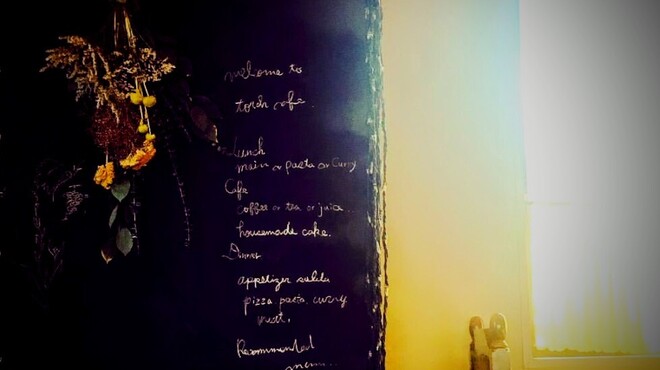 welcome to
torch cafe.
Lunch
main or pasta or curry
Cafe
coffee or tea or juice..
housemade cake.
Dinner
appetizer salada
pizza pasta, curry
meat.
Recommended
menu...